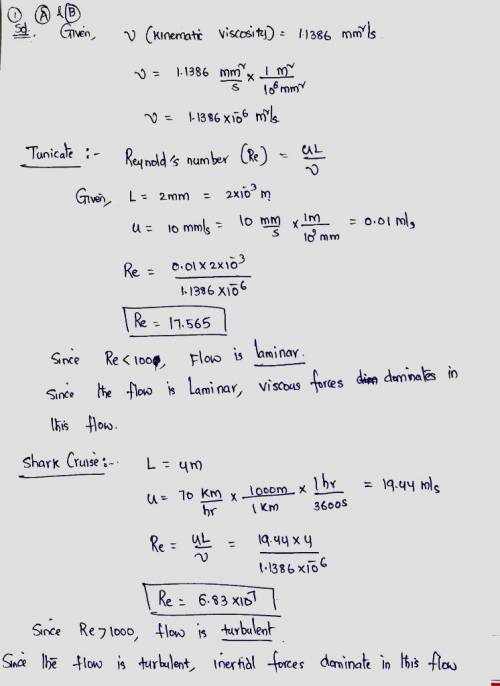 ① Ⓐ & Ⓑ
Sol. Given, ν (Kinematic viscosity) = 1.1386 mm²/s
ν = 1.1386 mm²/s × 1 m²/10⁶ mm²
ν = 1.1386 × 10⁻⁶ m²/s
Tunicate :- Reynold's number (Re) = uL/ν
Given, L = 2mm = 2×10⁻³ m
u = 10 mm/s = 10 mm/s × 1m/10³ mm = 0.01 m/s
Re = 0.01 × 2×10⁻³ / 1.1386 × 10⁻⁶
Re = 17.565
Since Re < 100, Flow is laminar.
Since the flow is Laminar, viscous forces dominates in
this flow.
Shark Cruise :- L = 4m
u = 70 Km/hr × 1000m/1 Km × 1 hr/3600s = 19.44 m/s
Re = uL/ν = 19.44 × 4 / 1.1386 × 10⁻⁶
Re = 6.83 × 10⁷
Since Re > 1000, flow is turbulent
Since the flow is turbulent, inertial forces dominate in this flow